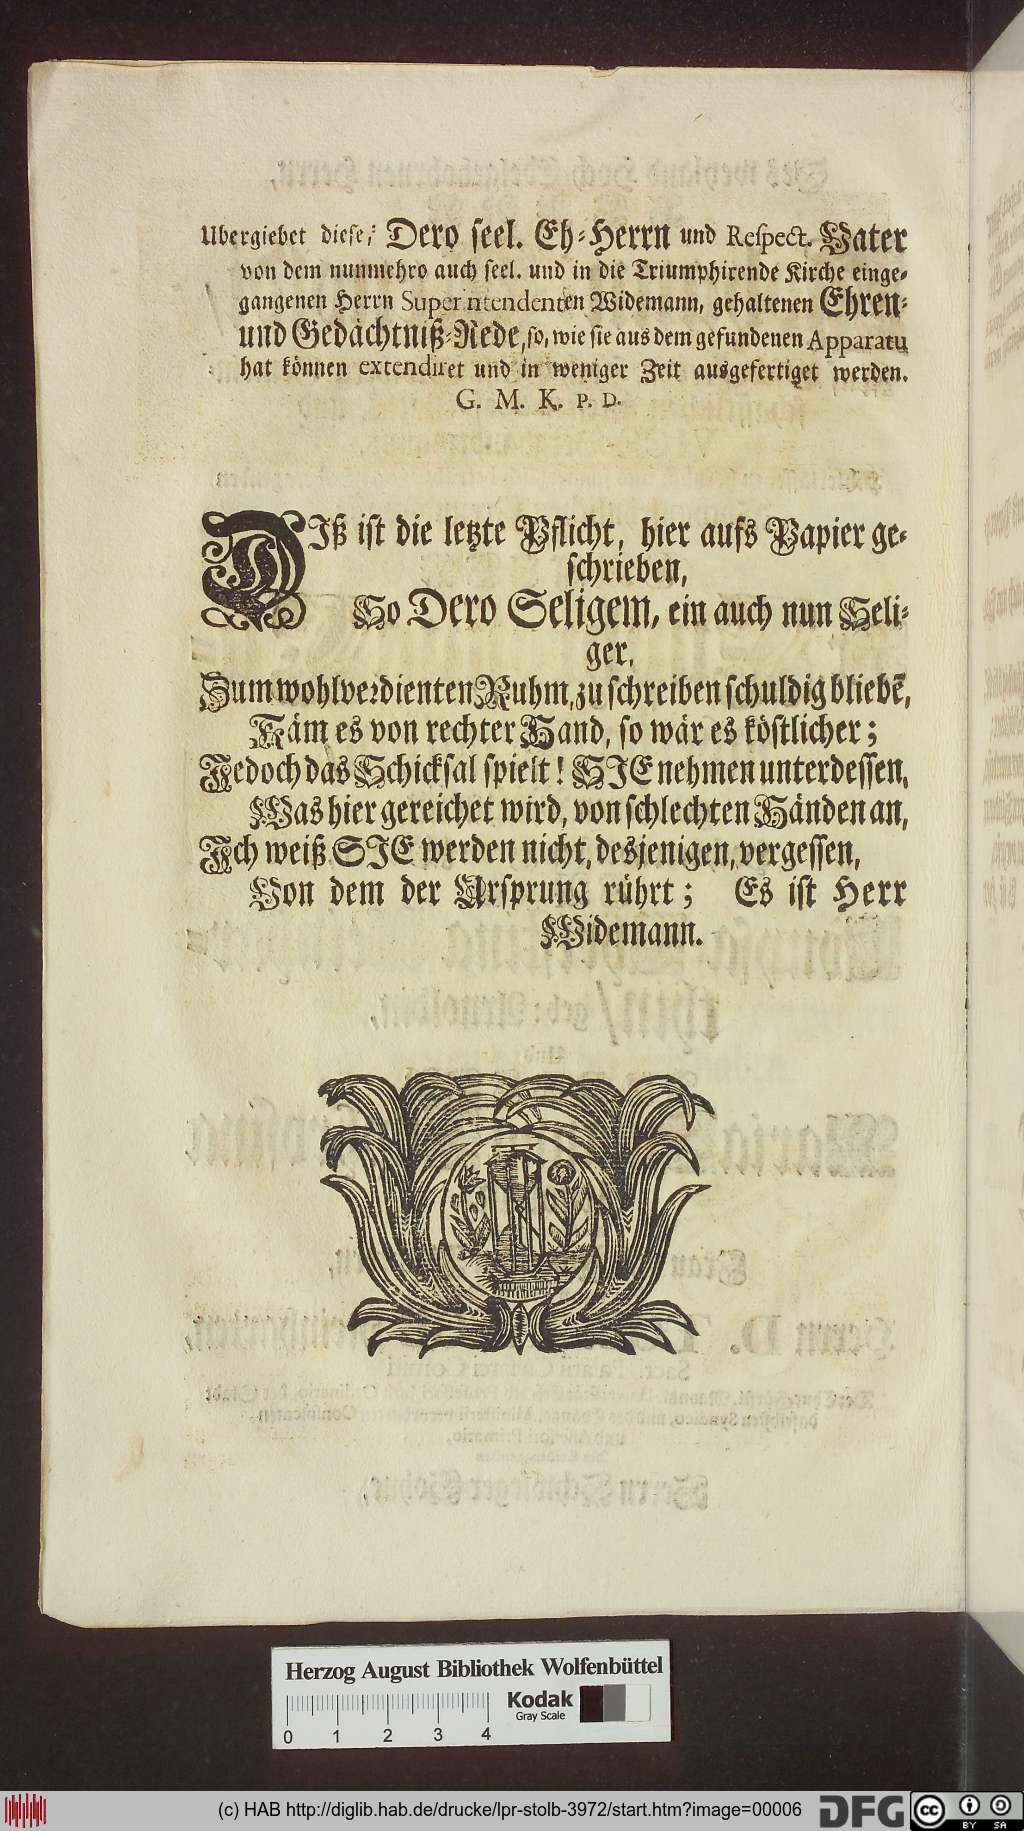 Ubergiebet diese, Dero seel. Eh-Herrn und Respect. Vater
von dem nunmehro auch seel. und in die Triumphirende Kirche einge-
gangenen Herrn Superintendenten Widemann, gehaltenen Ehren-
und Gedächtniß-Rede, so, wie sie aus dem gefundenen Apparatu
hat können extendiret und in weniger Zeit ausgefertiget werden.
G. M. K. P. D.
DIß ist die letzte Pflicht, hier aufs Papier ge-
schrieben,
So Dero Seligem, ein auch nun Seli-
ger,
Zum wohlverdienten Ruhm, zu schreiben schuldig bliebē,
Käm es von rechter Hand, so wär es köstlicher;
Jedoch das Schicksal spielt! SIE nehmen unterdessen,
Was hier gereichet wird, von schlechten Händen an,
Ich weiß SIE werden nicht, desjenigen, vergessen,
Von dem der Ursprung rührt; Es ist Herr
Widemann.
Herzog August Bibliothek Wolfenbüttel
Kodak
Gray Scale
0 1 2 3 4
(c) HAB http://diglib.hab.de/drucke/lpr-stolb-3972/start.htm?image=00006
DFG
cc BY SA